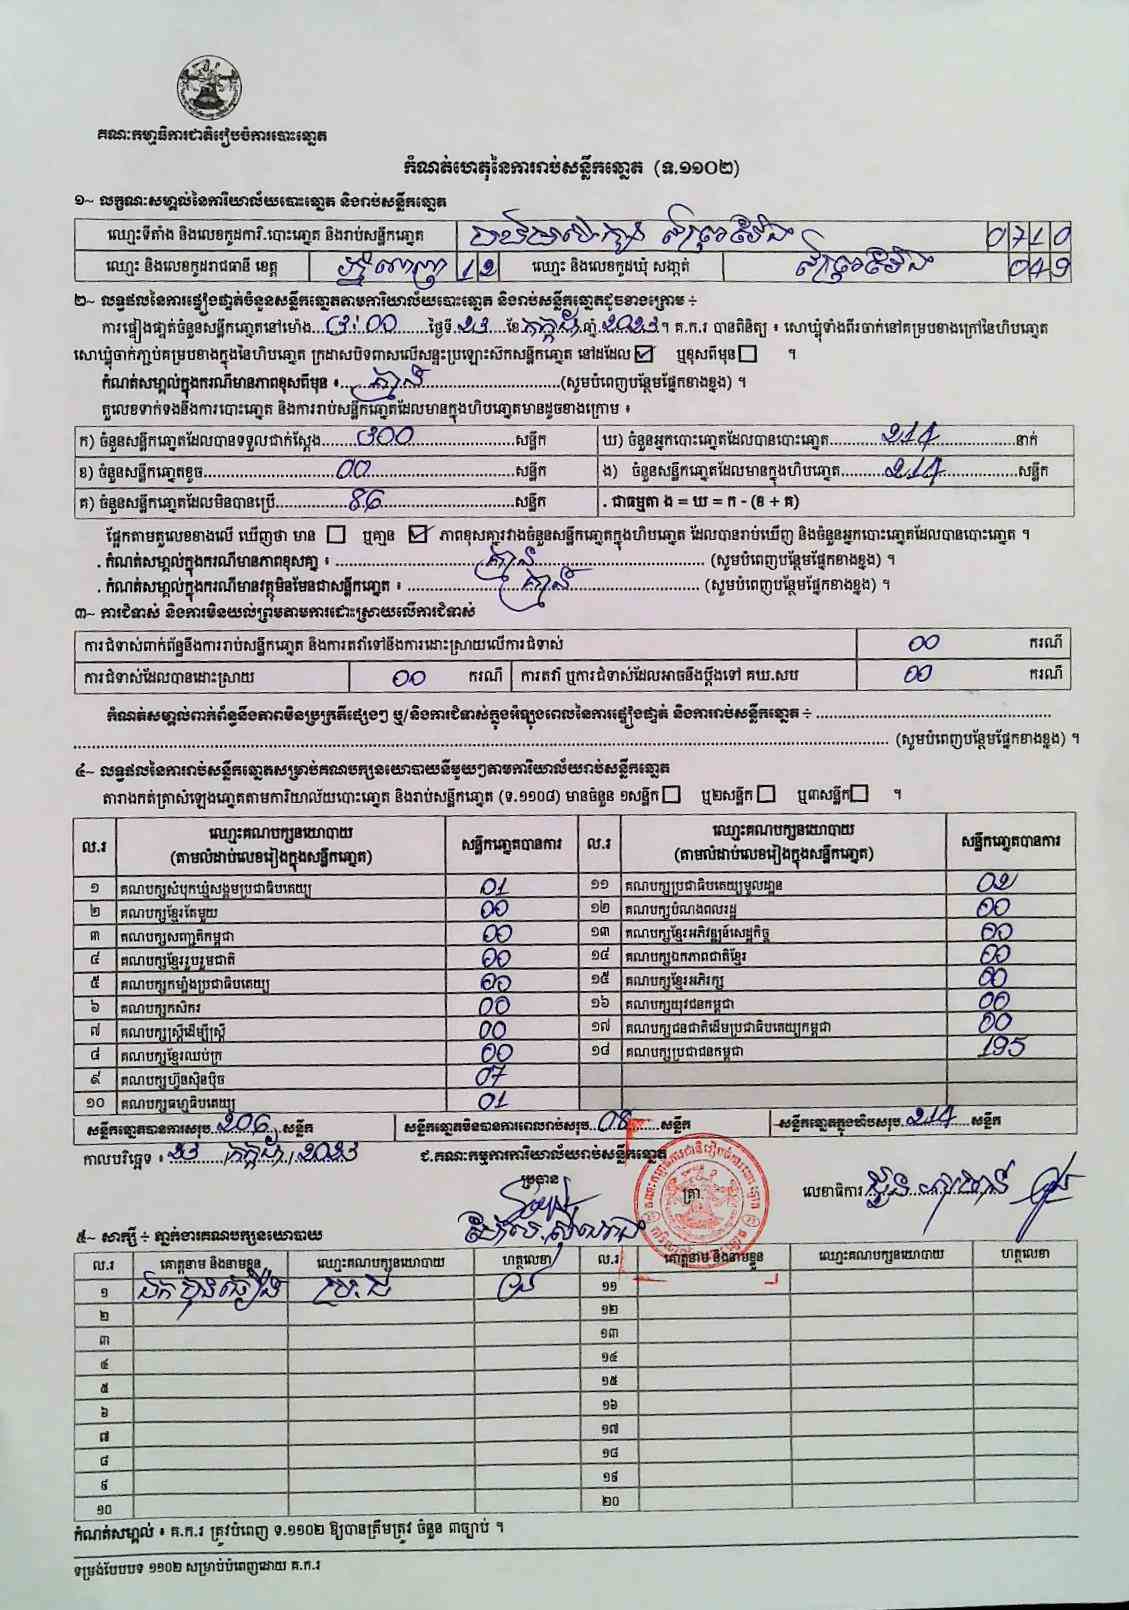 គណៈកម្មាធិការជាតិរៀបចំការបោះឆ្នោត
កំណត់ហេតុនៃការរាប់សន្លឹកឆ្នោត (ទ.១១០២)
១~ លក្ខណៈសម្គាល់នៃការិយាល័យបោះឆ្នោត និងរាប់សន្លឹកឆ្នោត
ឈ្មោះទីតាំង និងលេខកូដការិ.បោះឆ្នោត និងរាប់សន្លឹកឆ្នោត 0710
ឈ្មោះ និងលេខកូដរាជធានី ខេត្ត ភ្នំពេញ 12 ឈ្មោះ និងលេខកូដឃុំ សង្កាត់ 049
២~ លទ្ធផលនៃការផ្ទៀងផ្ទាត់ចំនួនសន្លឹកឆ្នោតតាមការិយាល័យបោះឆ្នោត និងរាប់សន្លឹកឆ្នោតដូចខាងក្រោម ÷
ការផ្ទៀងផ្ទាត់ចំនួនសន្លឹកឆ្នោតនៅម៉ោង 3:00 ថ្ងៃទី 23 ខែ កក្កដា ឆ្នាំ 2023 ។ គ.ក.រ បានពិនិត្យ ៖ សោឃ្មុំទាំងពីរចាក់នៅគម្របខាងក្រៅនៃហិបឆ្នោត
សោឃ្មុំចាក់ភ្ជាប់គម្របខាងក្នុងនៃហិបឆ្នោត ក្រដាសបិទពាសលើសន្ទះប្រឡោះស៊កសន្លឹកឆ្នោត នៅដដែល ☑ ឬខុសពីមុន ☐ ។
កំណត់សម្គាល់ក្នុងករណីមានភាពខុសពីមុន ៖ គ្មាន (សូមបំពេញបន្ថែមផ្នែកខាងខ្នង) ។
តួលេខទាក់ទងនឹងការបោះឆ្នោត និងការរាប់សន្លឹកឆ្នោតដែលមានក្នុងហិបឆ្នោតមានដូចខាងក្រោម ៖
ក) ចំនួនសន្លឹកឆ្នោតដែលបានទទួលជាក់ស្តែង 300 សន្លឹក ឃ) ចំនួនអ្នកបោះឆ្នោតដែលបានបោះឆ្នោត 214 នាក់
ខ) ចំនួនសន្លឹកឆ្នោតខូច 00 សន្លឹក ង) ចំនួនសន្លឹកឆ្នោតដែលមានក្នុងហិបឆ្នោត 214 សន្លឹក
គ) ចំនួនសន្លឹកឆ្នោតដែលមិនបានប្រើ 86 សន្លឹក . ជាធម្មតា ង = ឃ = ក - (ខ + គ)
ផ្អែកតាមតួលេខខាងលើ ឃើញថា មាន ☐ ឬគ្មាន ☑ ភាពខុសគ្នារវាងចំនួនសន្លឹកឆ្នោតក្នុងហិបឆ្នោត ដែលបានរាប់ឃើញ និងចំនួនអ្នកបោះឆ្នោតដែលបានបោះឆ្នោត ។
. កំណត់សម្គាល់ក្នុងករណីមានភាពខុសគ្នា ៖ គ្មាន (សូមបំពេញបន្ថែមផ្នែកខាងខ្នង) ។
. កំណត់សម្គាល់ក្នុងករណីមានវត្ថុមិនមែនជាសន្លឹកឆ្នោត ៖ គ្មាន (សូមបំពេញបន្ថែមផ្នែកខាងខ្នង) ។
៣~ ការជំទាស់ និងការមិនយល់ព្រមតាមការដោះស្រាយលើការជំទាស់
ការជំទាស់ពាក់ព័ន្ធនឹងការរាប់សន្លឹកឆ្នោត និងការតវ៉ាទៅនឹងការដោះស្រាយលើការជំទាស់ 00 ករណី
ការជំទាស់ដែលបានដោះស្រាយ 00 ករណី ការតវ៉ា ឬការជំទាស់ដែលអាចនឹងប្តឹងទៅ គឃ.សប 00 ករណី
កំណត់សម្គាល់ពាក់ព័ន្ធនឹងភាពមិនប្រក្រតីផ្សេងៗ ឬ/និងការជំទាស់ក្នុងអំឡុងពេលនៃការផ្ទៀងផ្ទាត់ និងការរាប់សន្លឹកឆ្នោត ÷
(សូមបំពេញបន្ថែមផ្នែកខាងខ្នង) ។
៤~ លទ្ធផលនៃការរាប់សន្លឹកឆ្នោតសម្រាប់គណបក្សនយោបាយនីមួយៗតាមការិយាល័យរាប់សន្លឹកឆ្នោត
តារាងកត់ត្រាសំឡេងឆ្នោតតាមការិយាល័យបោះឆ្នោត និងរាប់សន្លឹកឆ្នោត (ទ.១១០៨) មានចំនួន ១សន្លឹក ☐ ឬ២សន្លឹក ☐ ឬ៣សន្លឹក ☐ ។
ល.រ ឈ្មោះគណបក្សនយោបាយ (តាមលំដាប់លេខរៀងក្នុងសន្លឹកឆ្នោត) សន្លឹកឆ្នោតបានការ ល.រ ឈ្មោះគណបក្សនយោបាយ (តាមលំដាប់លេខរៀងក្នុងសន្លឹកឆ្នោត) សន្លឹកឆ្នោតបានការ
១ គណបក្សសំបុកឃ្មុំសង្គមប្រជាធិបតេយ្យ 01 ១១ គណបក្សប្រជាធិបតេយ្យមូលដ្ឋាន 02
២ គណបក្សខ្មែរតែមួយ 00 ១២ គណបក្សបំណងពលរដ្ឋ 00
៣ គណបក្សសញ្ជាតិកម្ពុជា 00 ១៣ គណបក្សខ្មែរអភិវឌ្ឍន៍សេដ្ឋកិច្ច 00
៤ គណបក្សខ្មែររួបរួមជាតិ 00 ១៤ គណបក្សឯកភាពជាតិខ្មែរ 00
៥ គណបក្សកម្លាំងប្រជាធិបតេយ្យ 00 ១៥ គណបក្សខ្មែរអភិរក្ស 00
៦ គណបក្សកសិករ 00 ១៦ គណបក្សយុវជនកម្ពុជា 00
៧ គណបក្សស្ត្រីដើម្បីស្ត្រី 00 ១៧ គណបក្សជនជាតិដើមប្រជាធិបតេយ្យកម្ពុជា 00
៨ គណបក្សខ្មែរឈប់ក្រ 00 ១៨ គណបក្សប្រជាជនកម្ពុជា 195
៩ គណបក្សហ៊្វុនស៊ិនប៉ិច 07
១០ គណបក្សធម្មាធិបតេយ្យ 01
សន្លឹកឆ្នោតបានការសរុប 206 សន្លឹក សន្លឹកឆ្នោតមិនបានការពេលរាប់សរុប 08 សន្លឹក សន្លឹកឆ្នោតក្នុងហិបសរុប 214 សន្លឹក
កាលបរិច្ឆេទ ៖ 23 / កក្កដា / 2023 ជ.គណៈកម្មការការិយាល័យរាប់សន្លឹកឆ្នោត
ប្រធាន ត្រា លេខាធិការ
៥~ សាក្សី ÷ ភ្នាក់ងារគណបក្សនយោបាយ
ល.រ គោត្តនាម និងនាមខ្លួន ឈ្មោះគណបក្សនយោបាយ ហត្ថលេខា ល.រ គោត្តនាម និងនាមខ្លួន ឈ្មោះគណបក្សនយោបាយ ហត្ថលេខា
១ ១១
២ ១២
៣ ១៣
៤ ១៤
៥ ១៥
៦ ១៦
៧ ១៧
៨ ១៨
៩ ១៩
១០ ២០
កំណត់សម្គាល់ ៖ គ.ក.រ ត្រូវបំពេញ ទ.១១០២ ឱ្យបានត្រឹមត្រូវ ចំនួន ៣ច្បាប់ ។
ទម្រង់បែបបទ ១១០២ សម្រាប់បំពេញដោយ គ.ក.រ